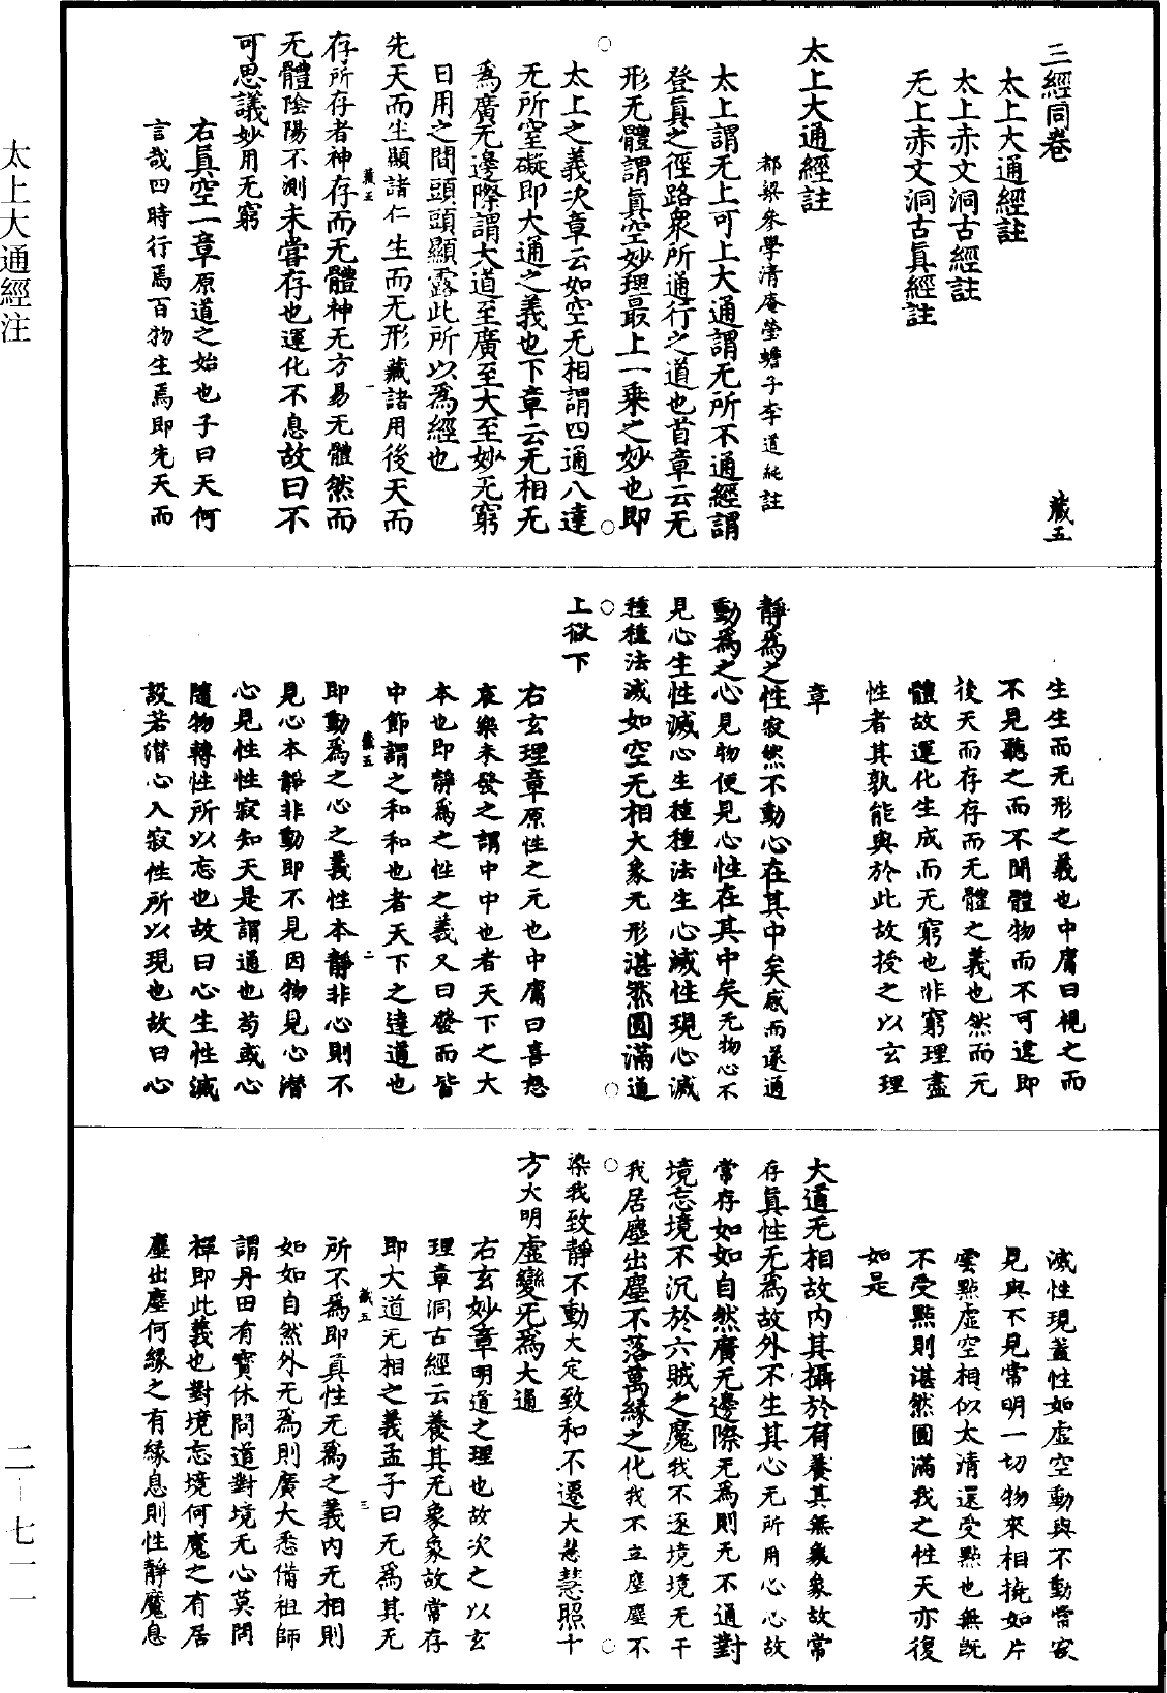 三經同卷　藏五
太上大通經註
太上赤文洞古經註
无上赤文洞古真經註
太上大通經註
都梁參學清庵瑩蟾子李道純註
太上謂无上可上大通謂无所不通經謂
登真之徑路衆所通行之道也首章云无
形无體謂真空妙理最上一乘之妙也即
太上之義次章云如空无相謂四通八達
无所窒礙即大通之義也下章云无相无
爲廣无邊際謂大道至廣至大至妙无窮
日用之間頭頭顯露此所以爲經也
先天而生顯諸仁生而无形藏諸用後天而
存所存者神存而无體神无方易无體然而
无體陰陽不測未嘗存也運化不息故曰不
可思議妙用无窮
右真空一章原道之始也子曰天何
言哉四時行焉百物生焉即先天而
生生而无形之義也中庸曰視之而
不見聽之而不聞體物而不可遺即
後天而存存而无體之義也然而无
體故運化生成而无窮也非窮理盡
性者其孰能與於此故授之以玄理
章
靜爲之性寂然不動心在其中矣感而遂通
動爲之心見物便見心性在其中矣无物心不
見心生性滅心生種種法生心滅性現心滅
種種法滅如空无相大象无形湛然圓滿道
上徹下
右玄理章原性之元也中庸曰喜怒
哀樂未發之謂中中也者天下之大
本也即靜爲之性之義又曰發而皆
中節謂之和和也者天下之達道也
即動爲之心之義性本靜非心則不
見心本靜非動即不見因物見心潜
心見性性寂知天是謂通也苟或心
隨物轉性所以忘也故曰心生性滅
設若潜心入寂性所以現也故曰心
滅性現蓋性如虛空動與不動常寂
見與不見常明一切物來相撓如片
雲點虛空相似太清還受點也無既
不受點則湛然圓滿我之性天亦復
如是
大道无相故内其攝於有養其無象象故常
存真性无爲故外不生其心无所用心心故
常存如如自然廣无邊際无爲則无不通對
境忘境不沉於六賊之魔我不逐境境无干
我居塵出塵不落萬緣之化我不立塵塵不
染我致靜不動大定致和不遷大慧慧照十
方大明虛變无爲大通
右玄妙章明道之理也故次之以玄
理章洞古經云養其无象象故常存
即大道无相之義孟子曰无爲其无
所不爲即真性无爲之義内无相則
如如自然外无爲則廣大悉備祖師
謂丹田有寶休問道對境无心莫問
禪即此義也對境忘境何魔之有居
塵出塵何緣之有緣息則性靜魔息
太上大通經注
二－七一一